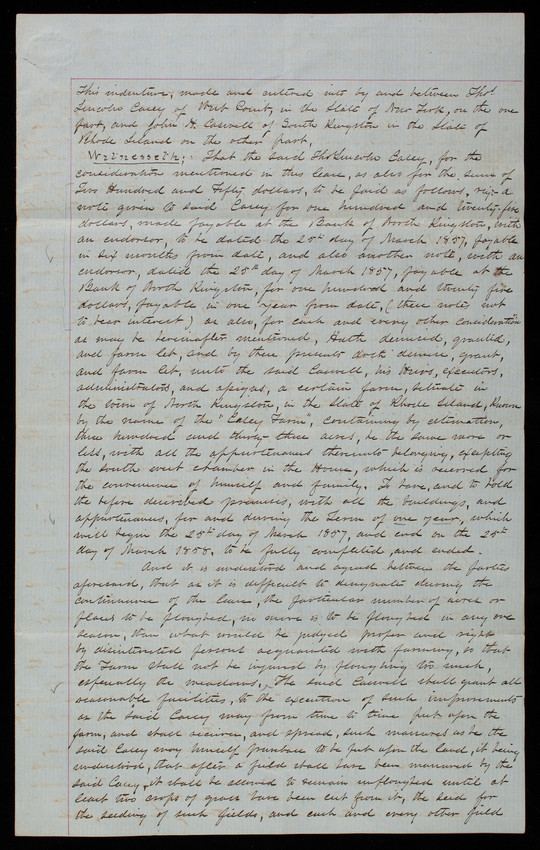 This indenture, made and entered into by and between Thos
Lincoln Casey of West Point, in the State of New York, on the one
part, and John H. Caswell of South Kingston in the State of
Rhode Island on the other part,
Witnesseth; That the said Thos Lincoln Casey, for the
consideration mentioned in this lease, as also for the sum of
Two Hundred and Fifty dollars, to be paid as follows, viz: a
note given to said Casey for one hundred and twenty-five
dollars, made payable at the Bank of North Kingston, with
an endorser, to be dated the 25th day of March 1857, payable
in six months from date, and also another note, with an
endorser, dated the 25th day of March 1857, payable at the
Bank of North Kingston, for one hundred and twenty five
dollars, payable in one year from date, (these notes not
to bear interest) as also, for each and every other consideration
as may be hereinafter mentioned, Hath demised, granted,
and farm let, and by these presents doth demise, grant,
and farm let, unto the said Caswell, his Heirs, executors,
administrators, and assigns, a certain farm, situate in
the town of North Kingston, in the State of Rhode Island, known
by the name of the "Casey Farm", containing by estimation,
three hundred and thirty three acres, be the same more or
less, with all the appurtenances thereunto belonging, excepting
the south west chamber in the House, which is reserved for
the convenience of himself and family. To have, and to hold
the before described premises, with all the buildings, and
appurtenances, for and during the Term of one year, which
will begin the 25th day of March 1857, and end on the 25th
day of March 1858, to be fully completed, and ended.
And it is understood and agreed between the parties
aforesaid, that as it is difficult to designate during the
continuance of the lease, the particular number of acres or
places to be ploughed, no more is to be ploughed in any one
season, than what would be judged proper and right
by disinterested persons acquainted with farming, so that
the Farm shall not be injured by ploughing too much,
especially the meadows, The said Caswell shall grant all
reasonable facilities, to the execution of such improvements
as the said Casey may from time to time put upon the
farm, and shall receive, and spread, such manures as he the
said Casey may himself purchase to be put upon the land, it being
understood, that after a field shall have been manured by the
said Casey, it shall be allowed to remain unploughed until at
least two crops of grass have been cut from it, the seed for
the seeding of such fields, and each and every other field